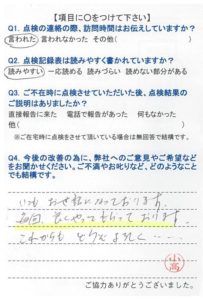 【項目に○をつけて下さい】
Q1. 点検の連絡の際、訪問時間はお伝えしていますか？
言われた 言われなかった その他( )
Q2. 点検記録表は読みやすく書かれていますか？
読みやすい 一応読める 読みづらい 読めない部分がある
Q3. ご不在時に点検させていただいた後、点検結果の
ご説明はありましたか？
直接報告に来た 電話で報告があった 何もなかった
他( )
※ご在宅時に点検をさせて頂いている場合は無回答で結構です。
Q4. 今後の改善の為に、弊社へのご意見やご希望など
をお聞かせください。ご不満やお叱りなど、どのようなこと
でも結構です。
いつも お世話になっております。
毎回 良くやってもらって おります。
これからも どうぞ よろしく…
小高
ご協力ありがとうございました。